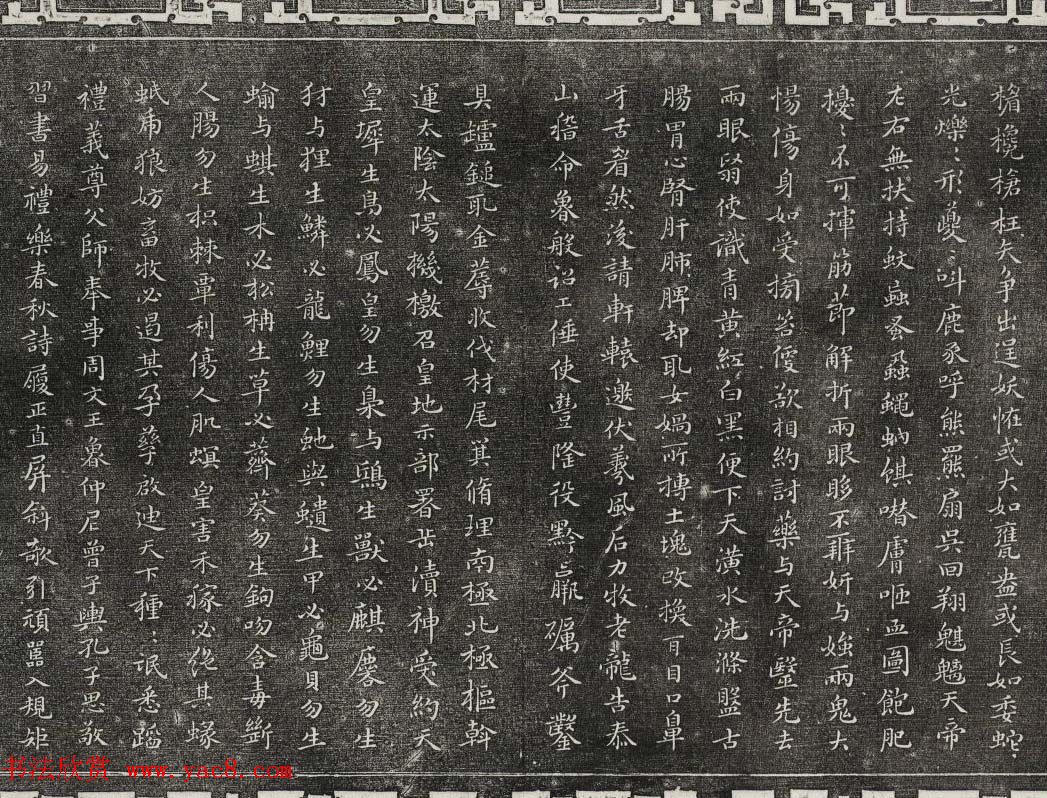 撍欃槍枉矢爭出逞妖恠或大如甕盎或長如委蛇
光爍爍形躨躨叫鹿豕呼熊羆扇吳回翔魃魑天帝
左右無扶持蚊蝱蚤蝨蠅蚋蜞噆膚咂血圖飽肥
擾擾不可揮筋節解折兩眼眵不辨妍与媸兩鬼大
惕傷身如受捬笞便欲相約討藥与天帝醫先去
兩眼翳使識青黃紅白黑便下天潢水洗滌盤古
腸胃心腎肝肺脾却取女媧所摶土塊改換耳目口鼻
牙舌眉然後請軒轅邀伏羲風后力牧老龍吉泰
山稽命魯般詔工倕使豐隆役黔羸礪斧鑿
具鑪鎚取金蓐收伐材尾箕脩理南極北極樞斡
運太陰太陽機檄召皇地示部署岳瀆神受約天
皇墀生鳥必鳳皇勿生梟与鴞生獸必麒麐勿生
犲与狸生鱗必龍鯉勿生虵與蟦生甲必龜貝勿生
蝓与蜞生木必松枏生草必薺葵勿生鉤吻含毒斷
人腸勿生枳棘覃利傷人肌螟皇害禾稼必絕其蝝
蚳乕狼妨畜牧必遏其孕孳啟迪天下蠢蠢氓悉蹈
禮義尊父師奉事周文王魯仲尼曾子輿孔子思敬
習書易禮樂春秋詩履正直屏斜欹引頑嚚入規矩
书法欣赏 www.yac8.com